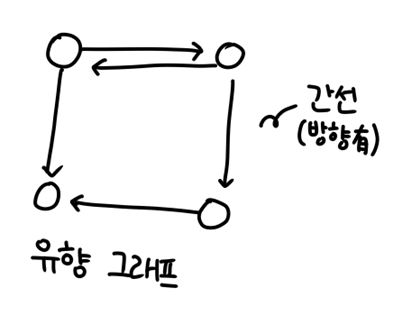 간선
(방향有)
유향 그래프